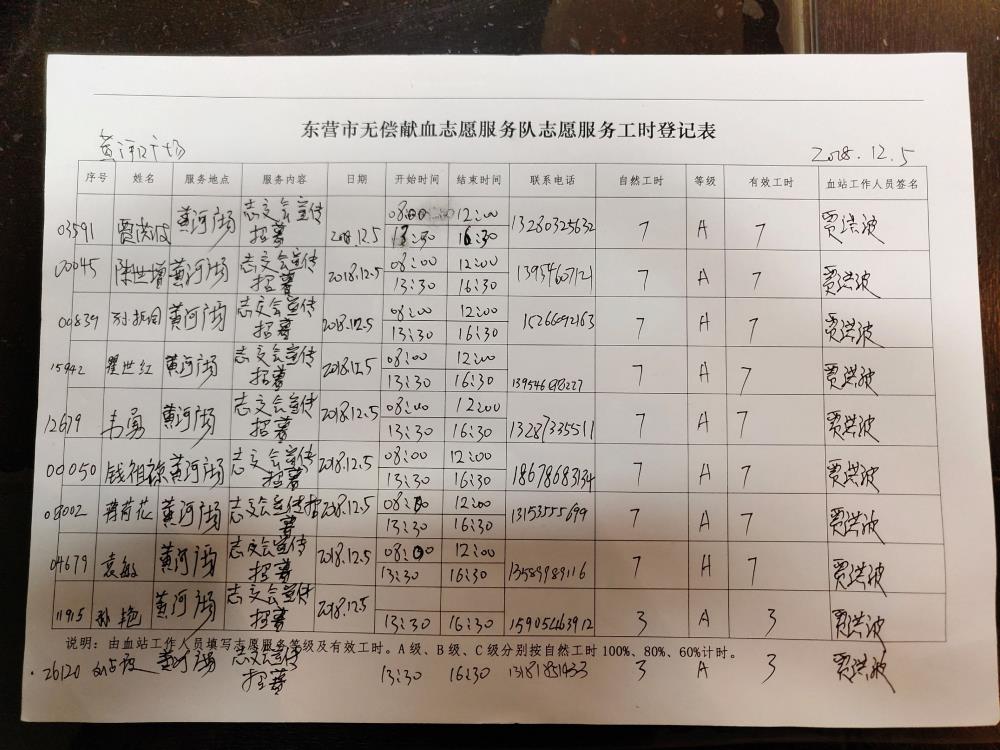 东营市无偿献血志愿服务队志愿服务工时登记表
黄河广场 2018.12.5
序号 姓名 服务地点 服务内容 日期 开始时间 结束时间 联系电话 自然工时 等级 有效工时 血站工作人员签名
03591 贾洪波 黄河广场 志交会宣传招募 2018.12.5 08:00 12:00 13280325632 7 A 7 贾洪波
13:30 16:30
00045 陈世增 黄河广场 志交会宣传招募 2018.12.5 08:00 12:00 13954607121 7 A 7 贾洪波
13:30 16:30
00839 黄河广场 志交会宣传招募 2018.12.5 08:00 12:00 15266092163 7 A 7 贾洪波
13:30 16:30
15942 瞿世红 黄河广场 志交会宣传招募 2018.12.5 08:00 12:00 7 A 7 贾洪波
13:30 16:30
12679 韦勇 黄河广场 志交会宣传招募 2018.12.5 08:00 12:00 13287335511 7 A 7 贾洪波
13:30 16:30
00050 钱祖琼 黄河广场 志交会宣传招募 2018.12.5 08:00 12:00 18678683134 7 A 7 贾洪波
13:30 16:30
08002 黄河广场 志交会宣传招募 2018.12.5 08:00 12:00 13153555699 7 A 7 贾洪波
13:30 16:30
04679 袁敏 黄河广场 志交会宣传招募 2018.12.5 08:00 12:00 13589989116 7 A 7 贾洪波
13:30 16:30
11915 孙艳 黄河广场 志交会宣传招募 2018.12.5 13:30 16:30 15905463912 3 A 3 贾洪波
说明：由血站工作人员填写志愿服务等级及有效工时。A级、B级、C级分别按自然工时100%、80%、60%计时。
26120 黄河广场 志交会宣传招募 13:30 16:30 13181851433 3 A 3 贾洪波